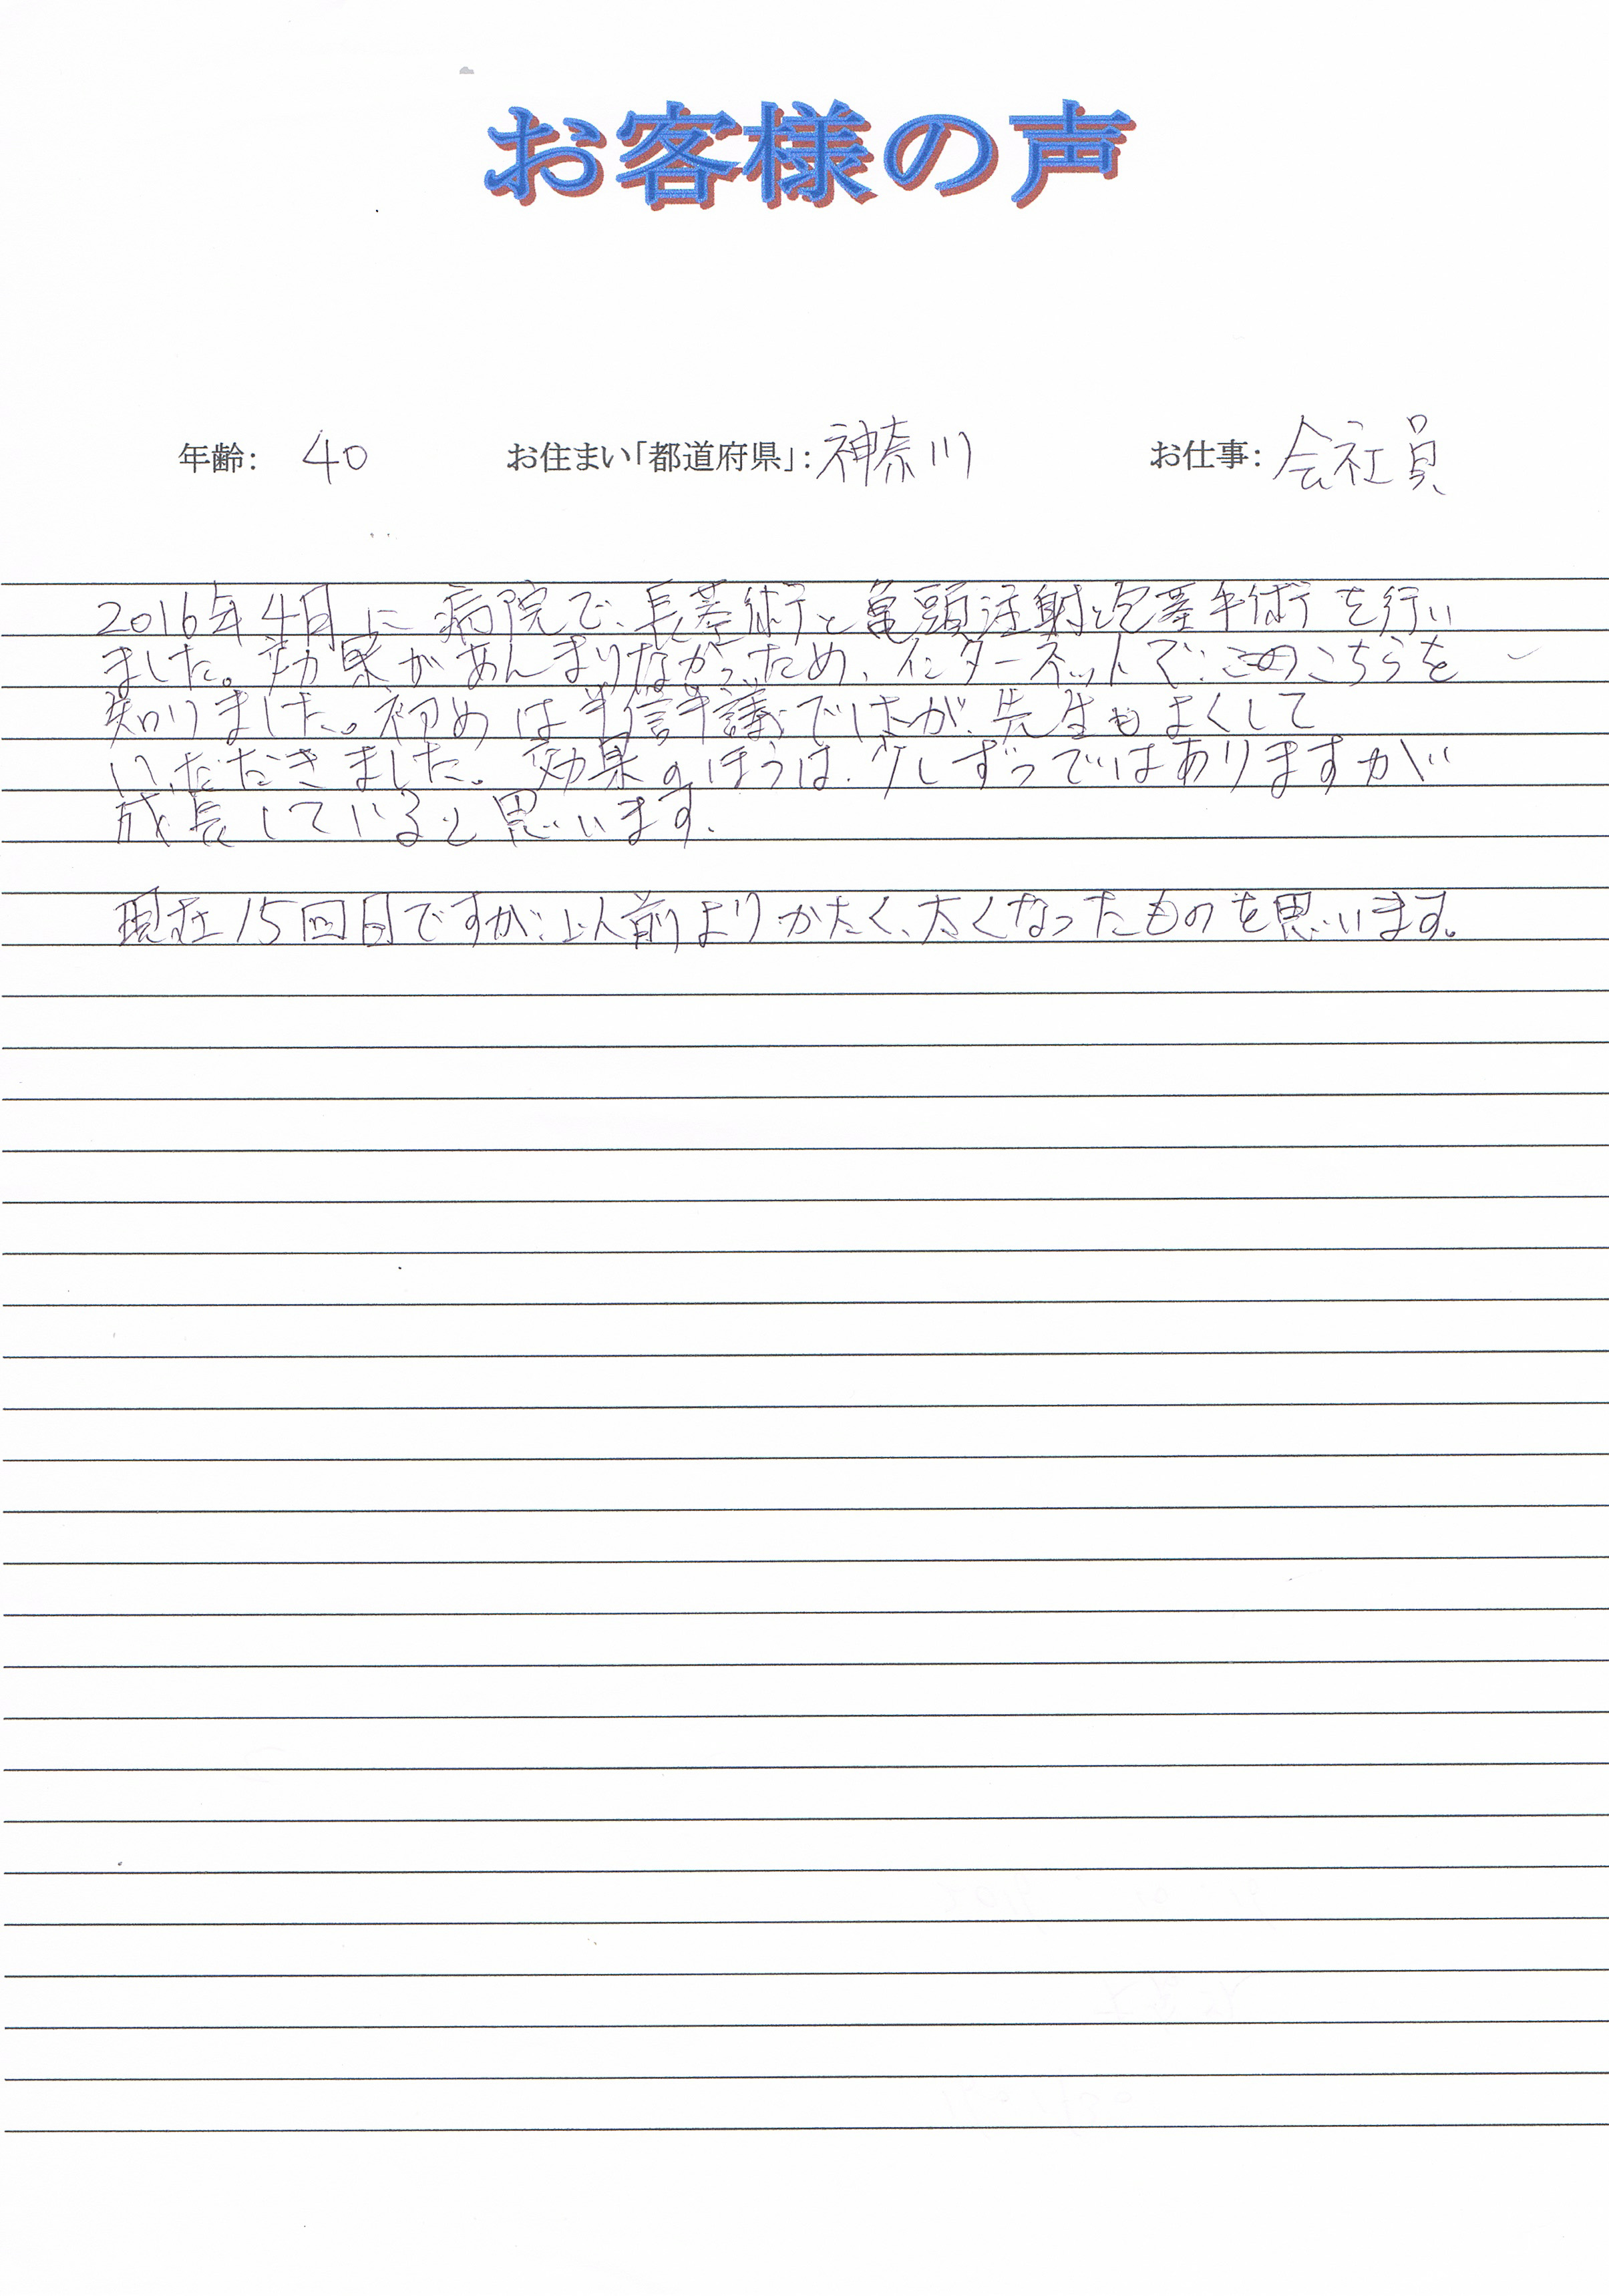 お客様の声
年齢: 40 お住まい「都道府県」: 神奈川 お仕事: 会社員
2016年4月に病院で、長茎術と亀頭注射と包茎手術を行い
ました。効果があんまりなかったため、インターネットで、このこちらを
知りました。初めは半信半議でしたが、先生もよくして
いただきました。効果のほうは、少しずつではありますが
成長していると思います。
現在15回目ですが、以前よりかたく、太くなったものを思います。